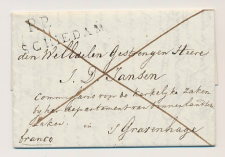 P.P.
SCHIEDAM
den WelEdelen Gestrengen Heere
J. D. Jansen
Commissaris voor de kerkelyke zaken
by het departement van binnenlandsche
Zaken
in
s Gravenhage
franco